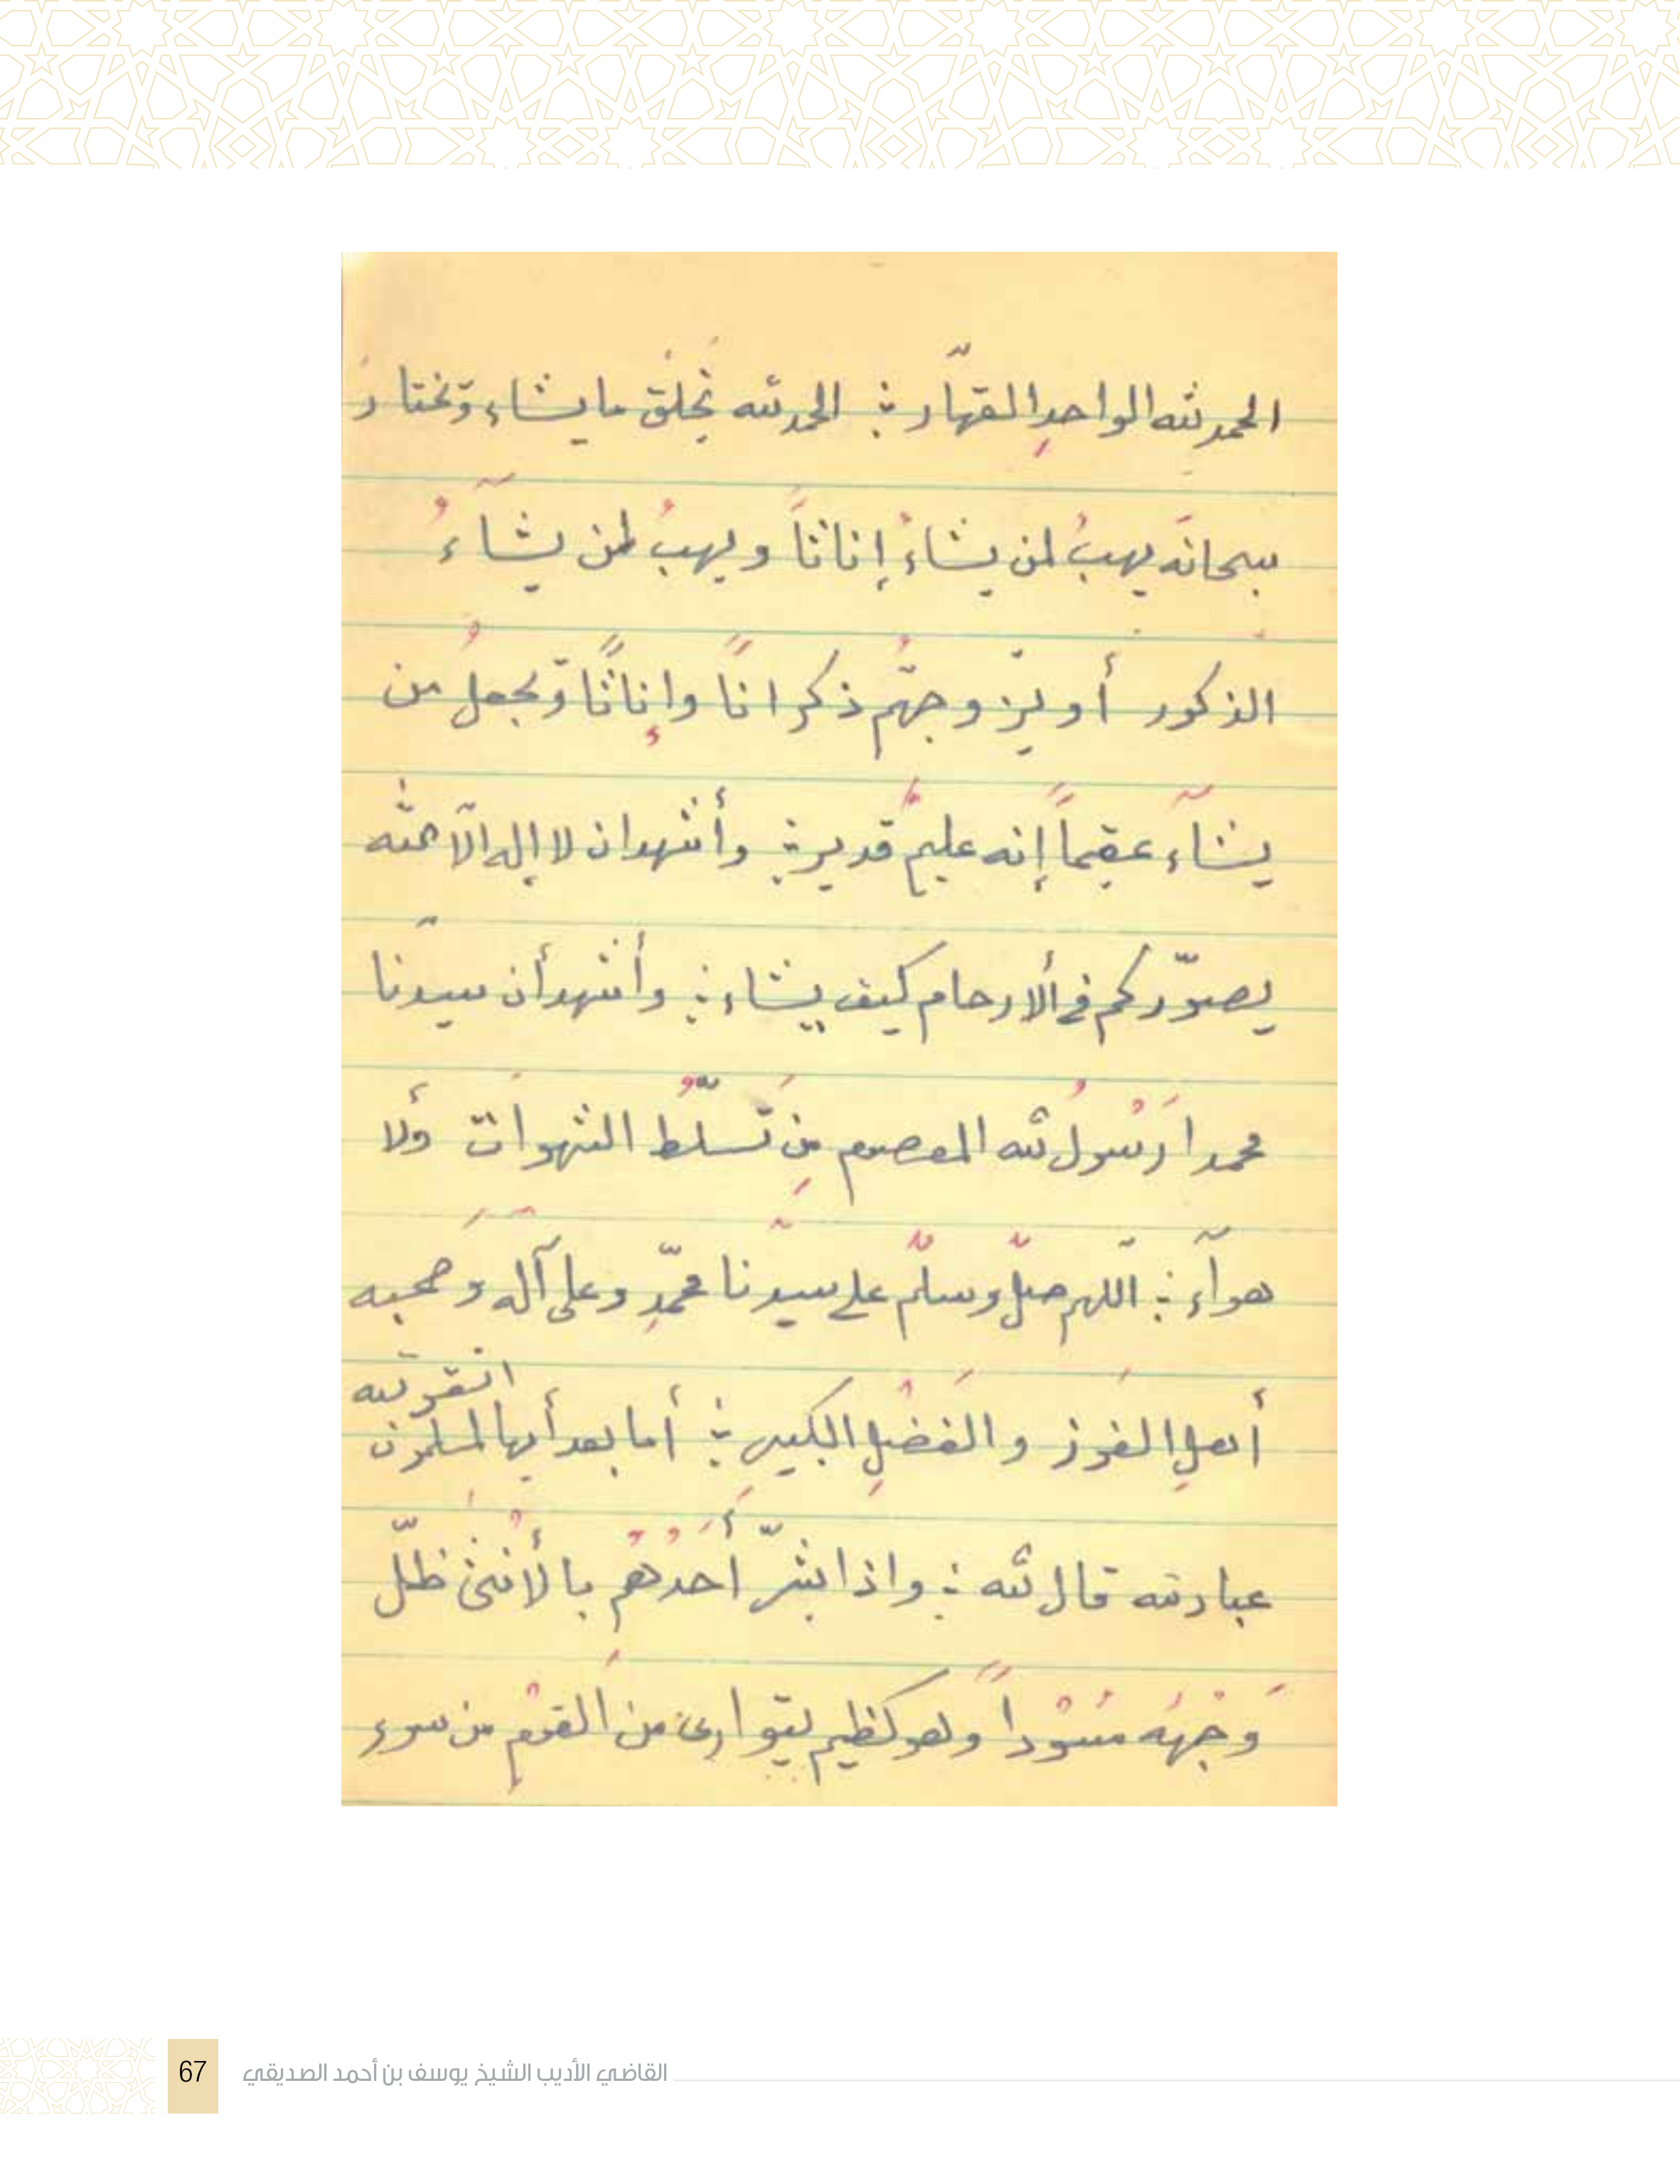 الحمد لله الواحدِ القهّار ؞ الحمد لله يَخلُق ما يشاء وَيختارُ
سبحانَه يهبُ لمن يشاءُ إناثاً ويهبُ لمن يشآءُ
الذكور أو يزوجهُم ذكراناً وإِناثًا وَيجعلُ من
يشآء عقيماً إنه عليمٌ قدير ؞ وأشهد ان لا إله الّا الله
يصوّركم في ألارحام كيف يشاء ؞ وأشهد أن سيدّنا
محمدا رَسُولُ الله المعصوم مِن تَسلّطُ الشهوات وألا
هوآء ؞ اللّهم صلِّ وسلّم على سيدّنا محمّدِ وعلى آله وَصحبه
أهلِ الفوز والفضْلِ الكبيرِ ؞ أما بعد أيها المسلمون
اتقو الله
عباد الله قال الله ؞ واذا بشّر أَحَدُهُم بالأنْثىٰ ظلّ
وَجْهُه مُسْوداً وهو كظيم يتوارى منَ القوْم من سوء
67
القاضي الأديب الشيخ يوسف بن أحمد الصديقي